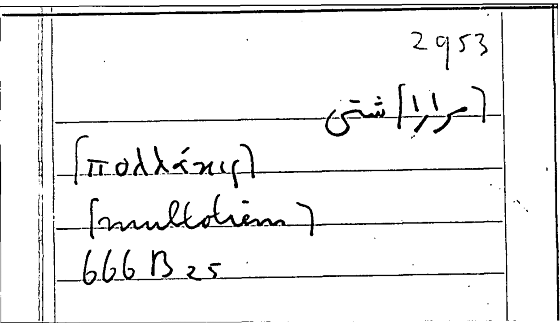 2953
[مرارا] شتى
[πολλάκις]
[multotiens]
666 B 25